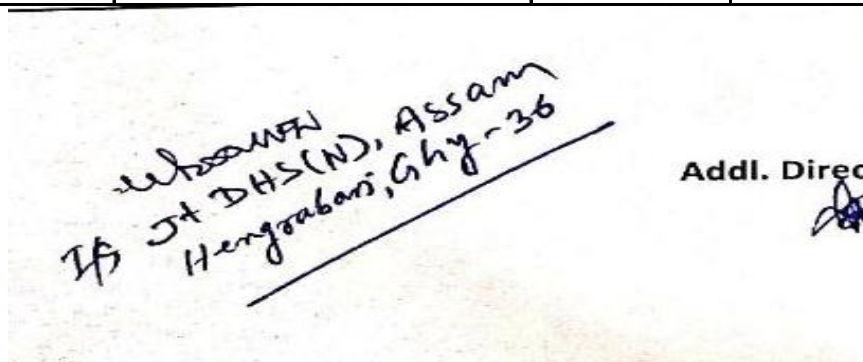 I/c Jt DHS(N), Assam
Hengrabari, Ghy-36
Addl. Direc